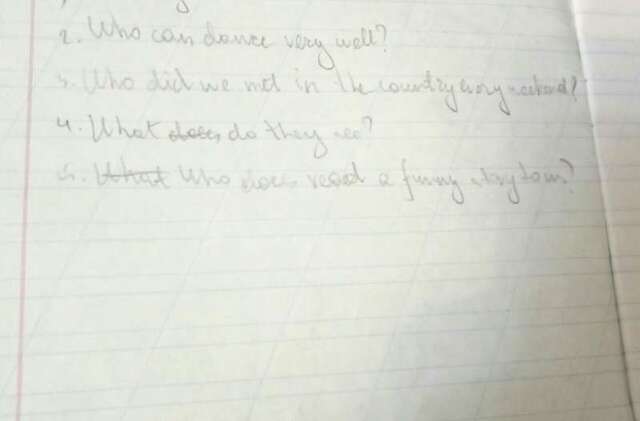 2. Who can dance very well?
3. Who did we met in the country every weekend?
4. What does, do they see?
5. What Who does read a funny story